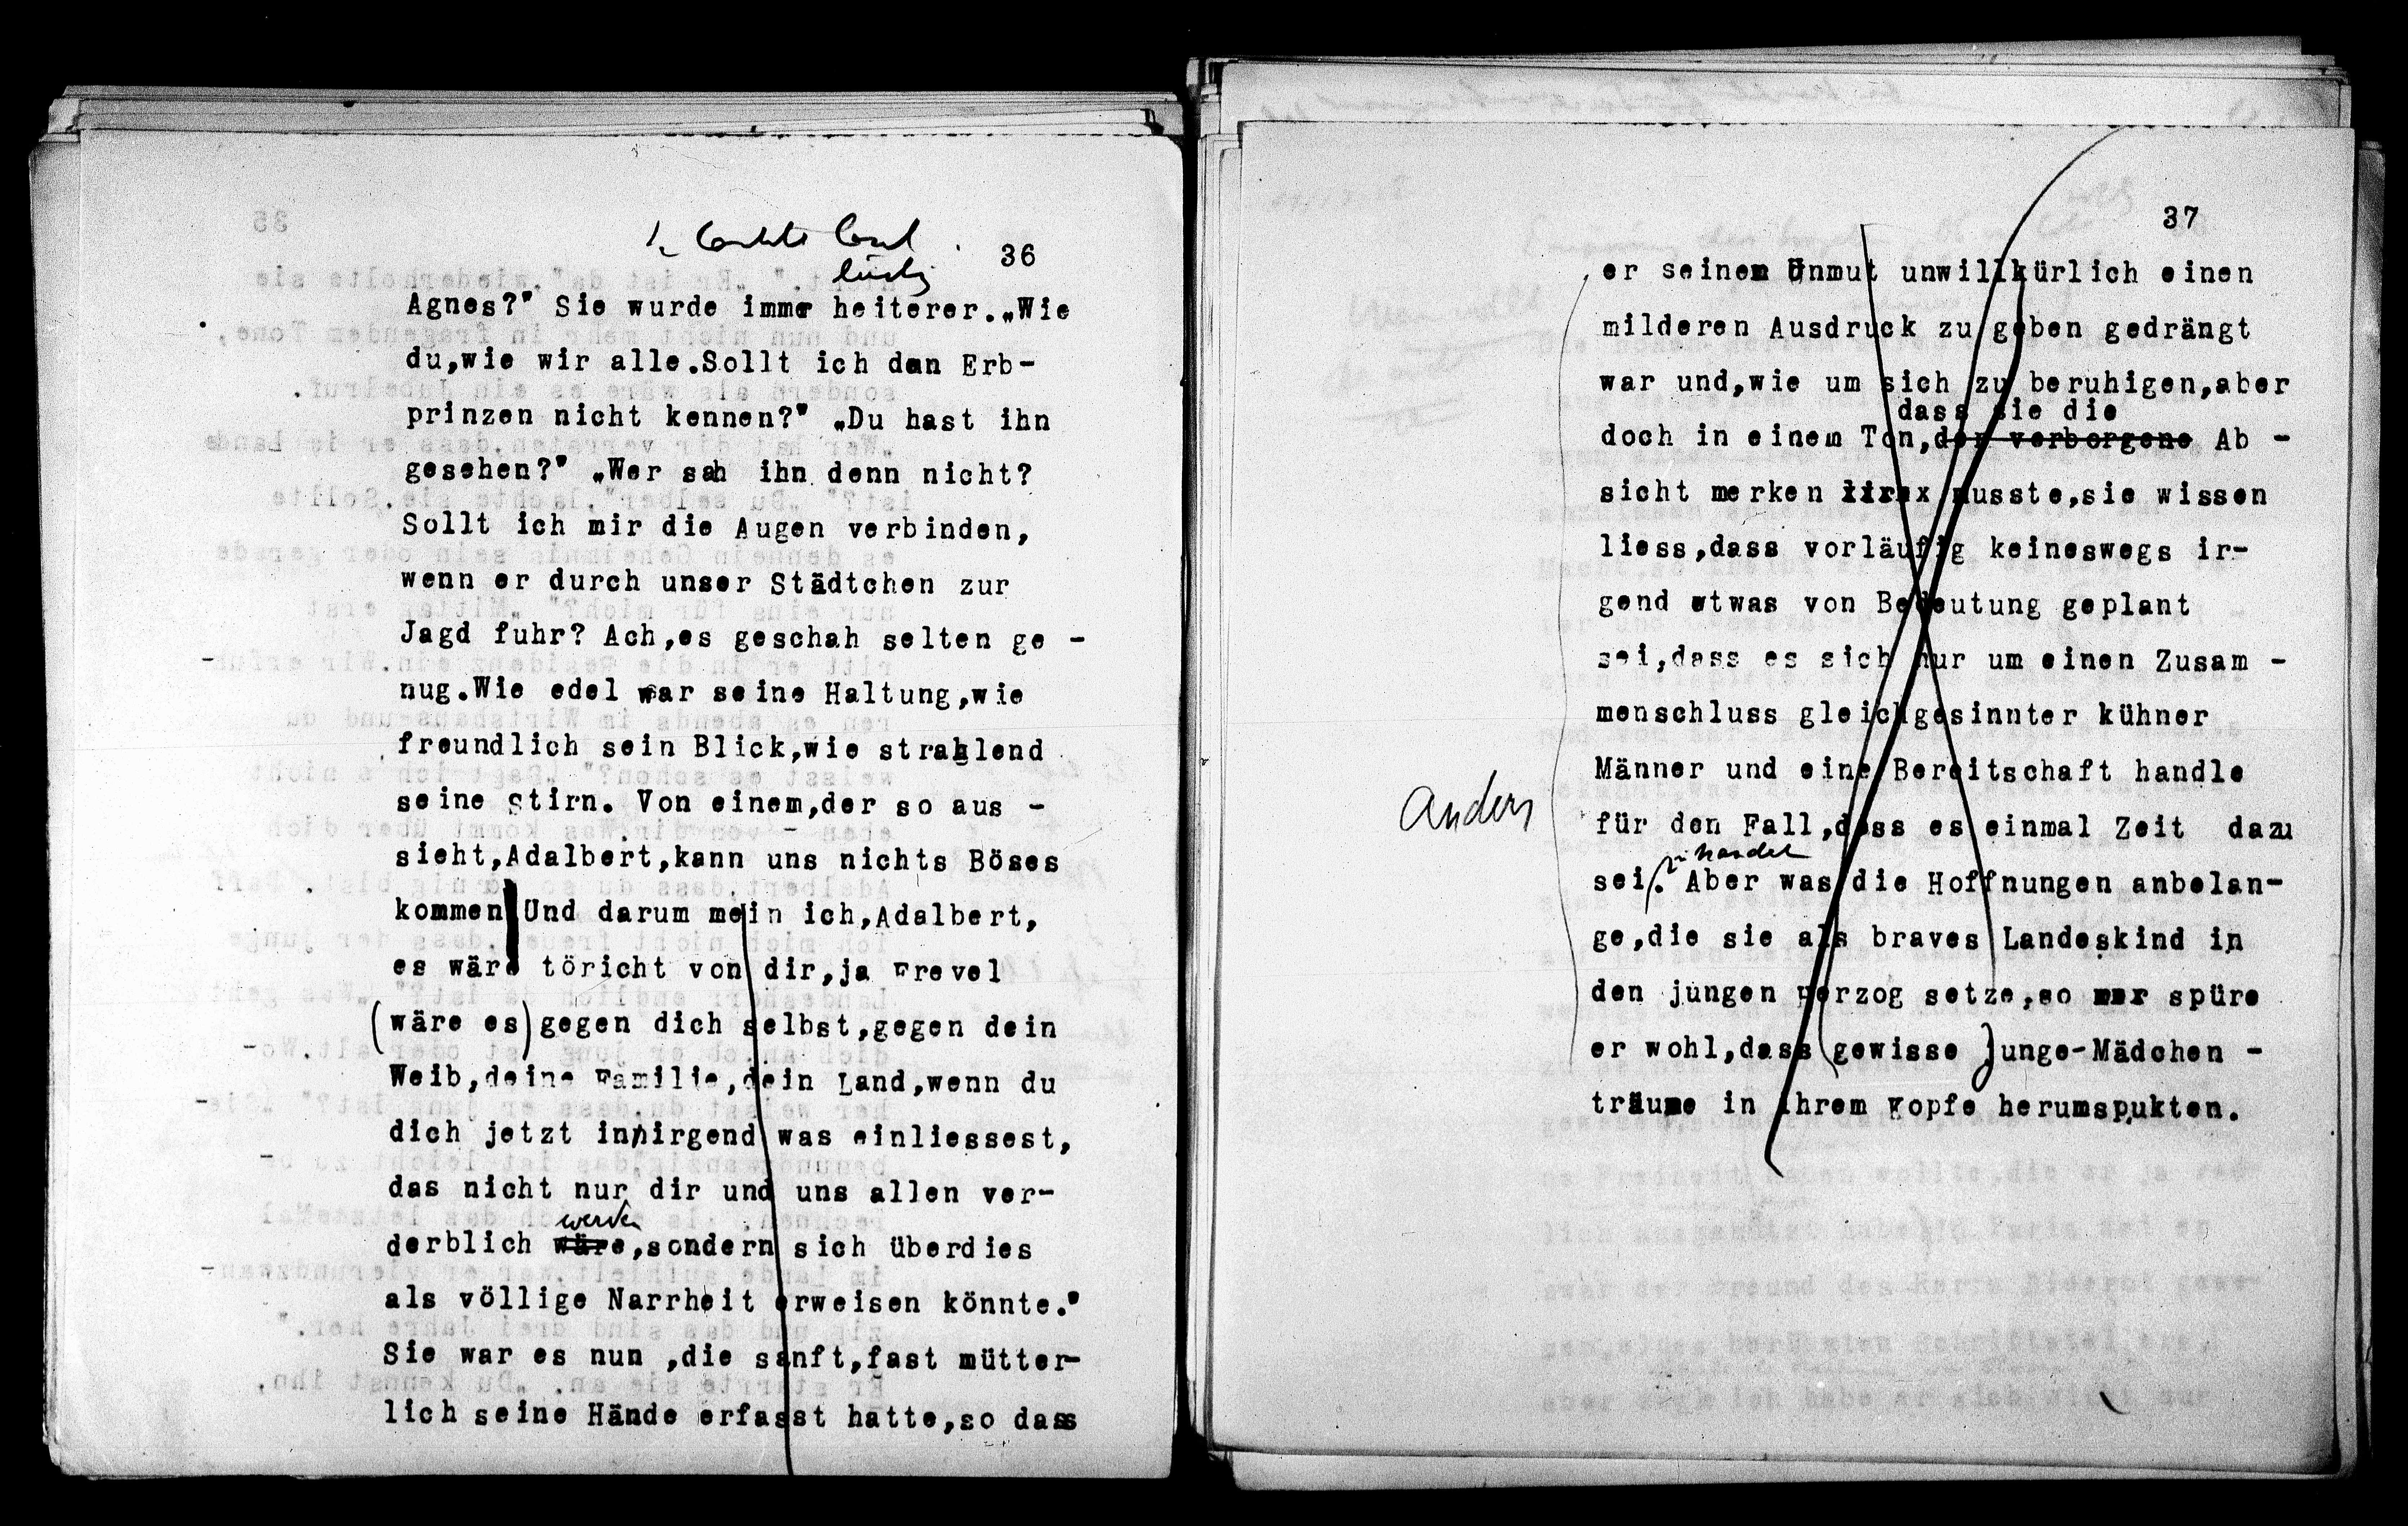 36
lachte laut
lustig
Agnes?" Sie wurde immer heiterer. „Wie
du,wie wir alle.Sollt ich den Erb-
prinzen nicht kennen?" „Du hast ihn
gesehen?" „Wer sah ihn denn nicht?
Sollt ich mir die Augen verbinden,
wenn er durch unser Städtchen zur
Jagd fuhr? Ach,es geschah selten ge -
nug.Wie edel war seine Haltung,wie
freundlich sein Blick,wie strahlend
seine Stirn. Von einem,der so aus -
sieht,Adalbert,kann uns nichts Böses
kommen Und darum mein ich,Adalbert,
es wäre töricht von dir,ja Frevel
(wäre es) gegen dich selbst,gegen dein
Weib,deine Familie,dein Land,wenn du
dich jetzt in irgend was einliessest,
das nicht nur dir und uns allen ver-
werden
derblich wäre,sondern sich überdies
als völlige Narrheit erweisen könnte."
Sie war es nun ,die sanft,fast mütter-
lich seine Hände erfasst hatte,so dass
37
er seinem Unmut unwillkürlich einen
milderen Ausdruck zu geben gedrängt
war und,wie um sich zu beruhigen,aber
dass sie die
doch in einem Ton,der verborgene Ab -
sicht merken musste,sie wissen
liess,dass vorläufig keineswegs ir-
gend etwas von Bedeutung geplant
sei,dass es sich nur um einen Zusam -
menschluss gleichgesinnter kühner
Männer und eine Bereitschaft handle
anders
für den Fall,dass es einmal Zeit dazu
zu handeln
sei. Aber was die Hoffnungen anbelan-
ge,die sie als braves Landeskind in
den jungen Herzog setze,so spüre
er wohl,dass (gewisse) Junge-Mädchen -
träume in ihrem Kopfe herumspukten.